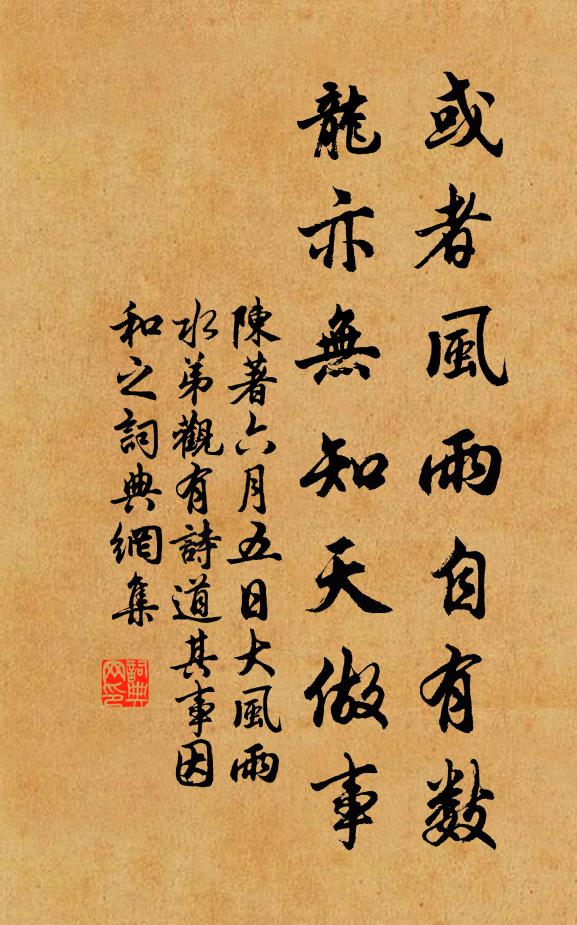 或者風雨自有數
龍亦無知天做事
陳著六月五日大風雨
水弟觀有詩道其事因
和之詞典網集
詞典
网印